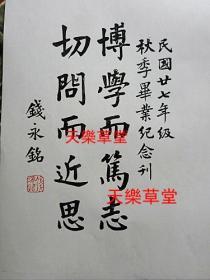 民國廿七年級
秋季畢業紀念刊
博學而篤志
切問而近思
錢永銘
天樂草堂
天樂草堂